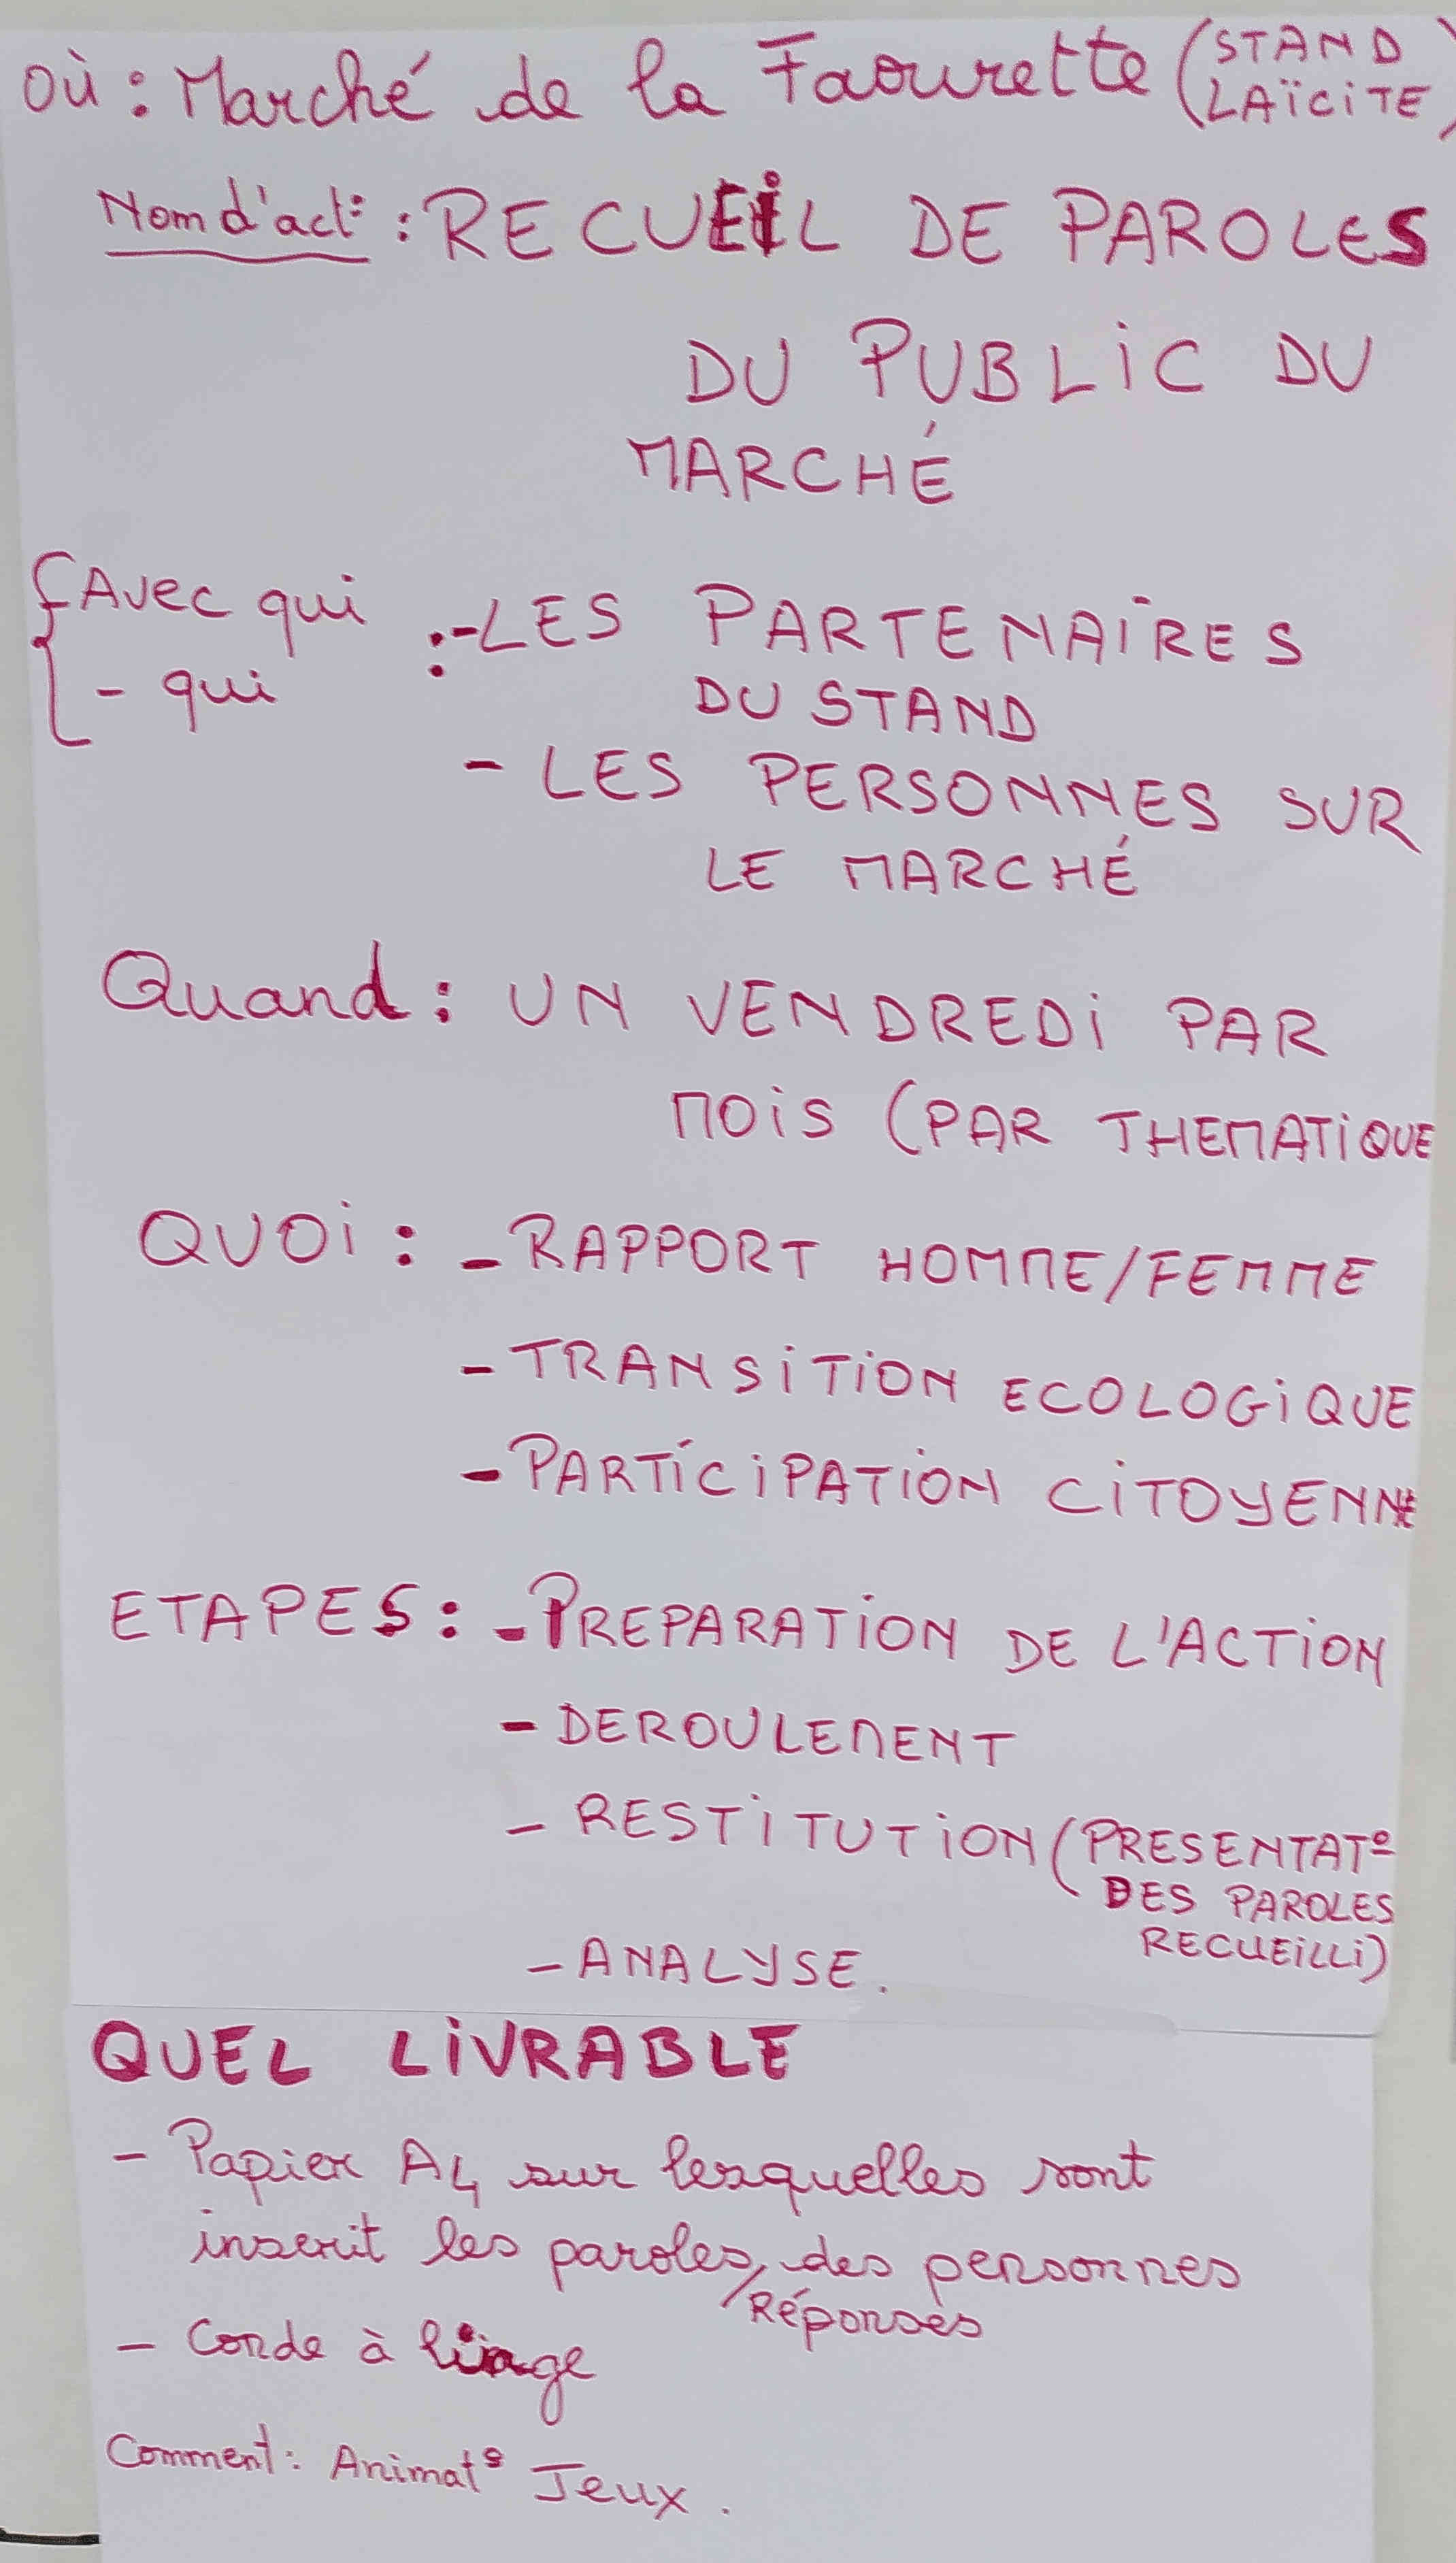 Où : Marché de la Faourette (STAND
LAÏCITE)
Nom d'act° : RECUEIL DE PAROLES
DU PUBLIC DU
MARCHÉ
{ Avec qui : - LES PARTENAIRES
- qui DU STAND
- LES PERSONNES SUR
LE MARCHÉ
Quand : UN VENDREDI PAR
MOIS (PAR THEMATIQUE
QUOI : - RAPPORT HOMME/FEMME
- TRANSITION ECOLOGIQUE
- PARTICIPATION CITOYENNE
ETAPES : - PREPARATION DE L'ACTION
- DEROULEMENT
- RESTITUTION (PRESENTAT°
DES PAROLES
RECUEILLI)
- ANALYSE.
QUEL LIVRABLE
- Papier A4 sur lesquelles sont
inscrit les paroles des personnes
/Réponses
- Corde à linge
Comment : Animat° Jeux.